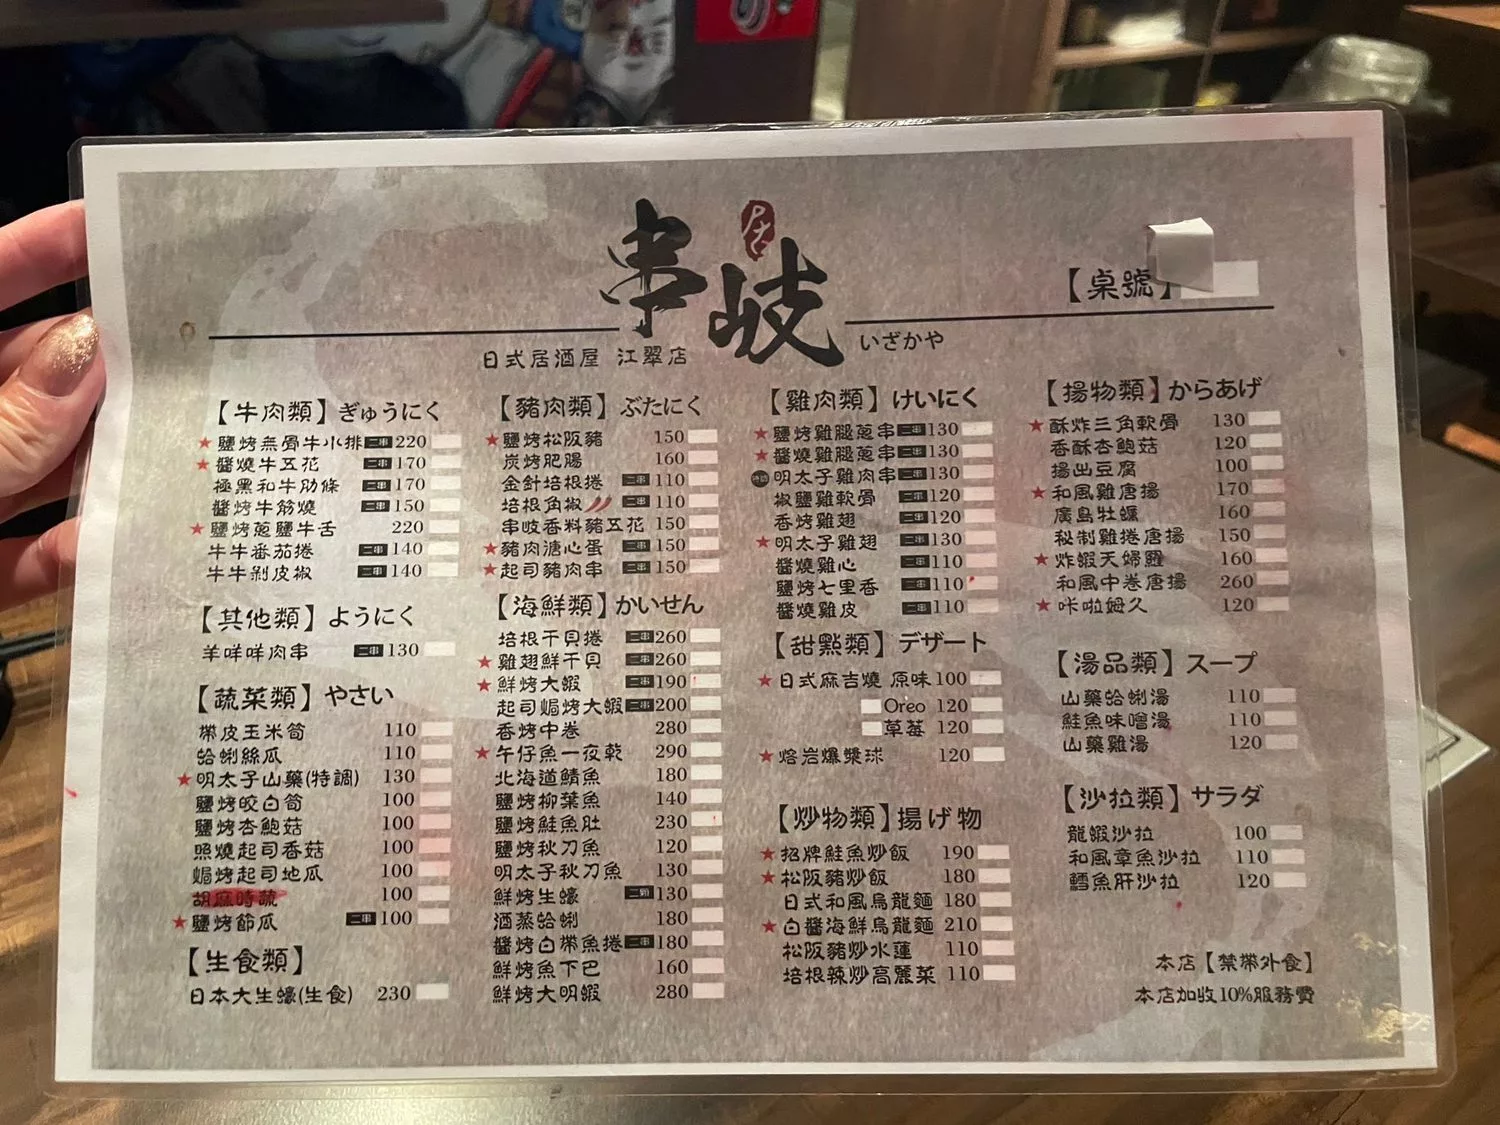 串岐
居
日式居酒屋 江翠店
いざかや
【桌號】
【牛肉類】ぎゅうにく
★鹽烤無骨牛小排 二串 220
★醬燒牛五花 二串 170
極黑和牛肋條 二串 170
醬烤牛筋燒 二串 150
★鹽烤蔥鹽牛舌 220
牛牛番茄捲 二串 140
牛牛剝皮椒 二串 140
【其他類】ようにく
羊咩咩肉串 二串 130
【蔬菜類】やさい
帶皮玉米筍 110
蛤蜊絲瓜 110
★明太子山藥(特調) 130
鹽烤皎白筍 100
鹽烤杏鮑菇 100
照燒起司香菇 100
焗烤起司地瓜 100
胡麻時蔬 100
★鹽烤節瓜 二串 100
【生食類】
日本大生蠔(生食) 230
【豬肉類】ぶたにく
★鹽烤松阪豬 150
炭烤肥腸 160
金針培根捲 二串 110
培根角椒 二串 110
串岐香料豬五花 150
★豬肉溏心蛋 二串 150
★起司豬肉串 二串 150
【海鮮類】かいせん
培根干貝捲 二串 260
★雞翅鮮干貝 二串 260
★鮮烤大蝦 二串 190
起司焗烤大蝦 二串 200
香烤中卷 280
★午仔魚一夜乾 290
北海道鯖魚 180
鹽烤柳葉魚 140
鹽烤鮭魚肚 230
鹽烤秋刀魚 120
明太子秋刀魚 130
鮮烤生蠔 二顆 130
酒蒸蛤蜊 180
醬烤白帶魚捲 二串 180
鮮烤魚下巴 160
鮮烤大明蝦 280
【雞肉類】けいにく
★鹽烤雞腿蔥串 二串 130
★醬燒雞腿蔥串 二串 130
明太子雞肉串 二串 130
椒鹽雞軟骨 二串 120
香烤雞翅 二串 120
★明太子雞翅 二串 130
醬燒雞心 二串 110
鹽烤七里香 二串 110
醬燒雞皮 二串 110
【甜點類】デザート
★日式麻吉燒 原味 100
Oreo 120
草莓 120
★熔岩爆漿球 120
【炒物類】揚げ物
★招牌鮭魚炒飯 190
★松阪豬炒飯 180
日式和風烏龍麵 180
★白醬海鮮烏龍麵 210
松阪豬炒水蓮 110
培根辣炒高麗菜 110
【揚物類】からあげ
★酥炸三角軟骨 130
香酥杏鮑菇 120
揚出豆腐 100
★和風雞唐揚 170
廣島牡蠣 160
秘制雞捲唐揚 150
★炸蝦天婦羅 160
和風中卷唐揚 260
★咔啦姆久 120
【湯品類】スープ
山藥蛤蜊湯 110
鮭魚味噌湯 110
山藥雞湯 120
【沙拉類】サラダ
龍蝦沙拉 100
和風章魚沙拉 110
鱈魚肝沙拉 120
本店【禁帶外食】
本店加收10%服務費